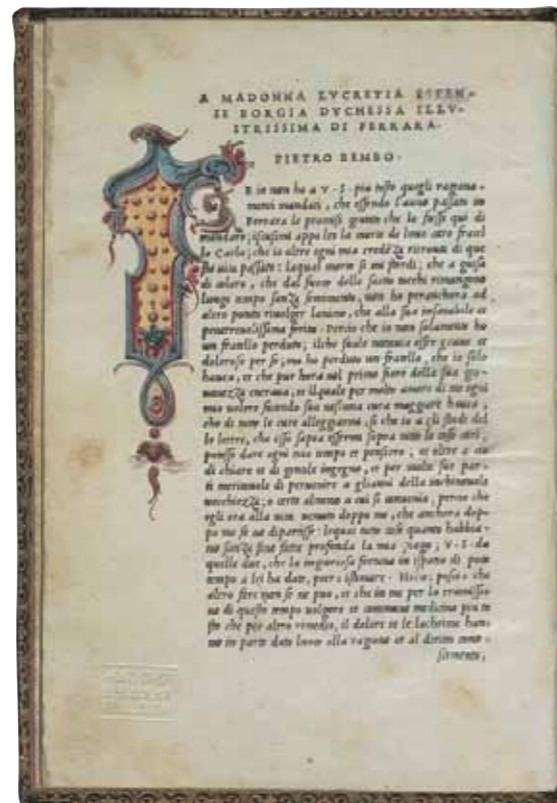 A MADONNA LVCRETIA ESTEN-
SE BORGIA DVCHESSA ILLV-
STRISSIMA DI FERRARA.
PIETRO BEMBO.
E io non ha a V. S. piu tosto quegli ragiona-
menti mandati, che essendo l'anno passato in
Ferrara le promisi giunto che io fussi qui di
mandare; iscusimi appo lei la morte di mio caro fratel
lo Carlo; che io oltre ogni mia credēza ritrovai di que
sta vita passato: laqual morte si mi stordi; che a guisa
di coloro, che dal fuoco delle saette tocchi rimangono
lungo tempo sanza sentimento, non ho peranchora ad
altro potuto rivolger l'animo, che alla sua insanabile et
penetrevolissima ferita. Percio che io non solamente ho
un fratello perduto; ilche suole tuttavia esser grave et
doloroso per se; ma ho perduto un fratello, che io solo
havea, et che pur hora nel primo fiore della sua gio-
vanezza entrava, et ilquale per molto amore di me ogni
mio volere facendo suo nessuna cura maggiore havea,
che di tutte le cure alleggiarmi, si che io a gli studi del
le lettre, che esso sapea essermi sopra tutte le cose cari,
potessi dare ogni mio tempo et pensiero; et oltre a cio
di chiaro et di gentile ingegno, et per molte sue par-
ti meritevole di pervenire a glianni della
vecchiezza; o certo almeno a cui si convenia, percio che
egli era alla vita venuto doppo me, che anchora dop-
po me se ne dipartisse. lequai tutte cose quanto habbia-
no sanza fine fatta profonda la mia piaga; V. S. da
quelle due, che la ingiuriosa fortuna in ispatio di poco
tempo a lei ha date, potra istimare. Hora; poscia che
altro fare non se ne puo, et che in me per la tramissio
ne di questo tempo volgare et commune medicina piu to
sto che per altro rimedio, il dolore et le lachrime han-
no in parte dato luogo alla ragione et al diritto cono-
scimento,